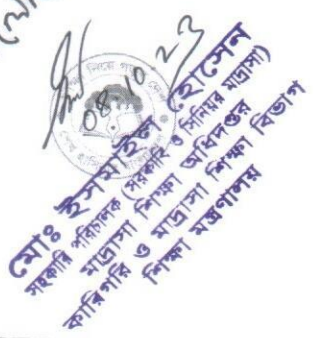 08/10/23
মোঃ ইসমাইল হোসেন
সহকারি পরিচালক (সরকারি ও সিনিয়র মাদ্রাসা)
মাদ্রাসা শিক্ষা অধিদপ্তর
কারিগরি ও মাদ্রাসা শিক্ষা বিভাগ
শিক্ষা মন্ত্রণালয়